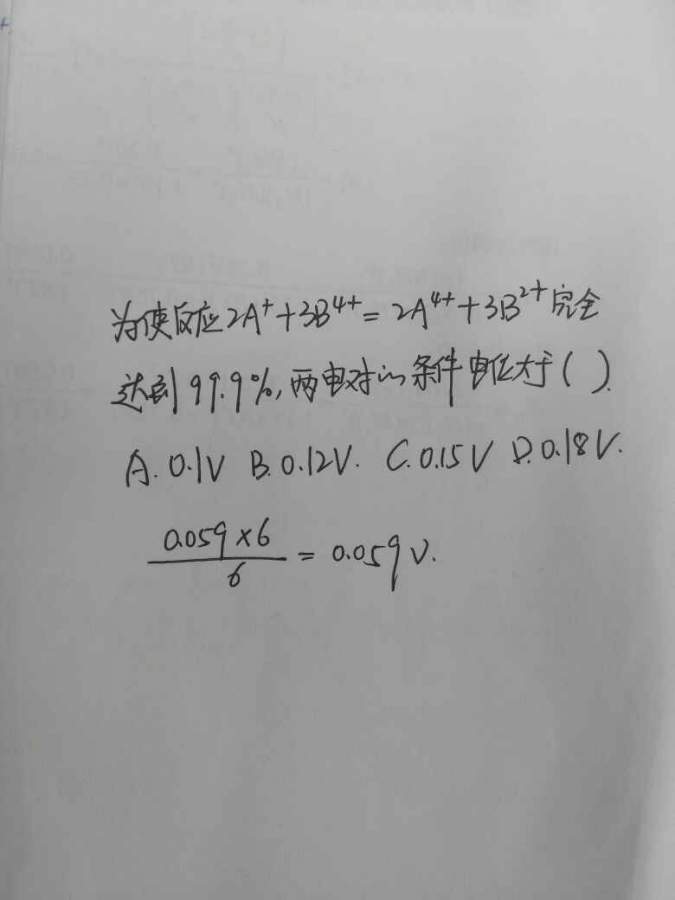 为使反应2A⁺+3B⁴⁺=2A⁴⁺+3B²⁺完全
达到99.9%,两电对的条件电位大于( ).
A.0.1V B.0.12V. C.0.15V D.0.18V.
0.059×6/6 = 0.059V.